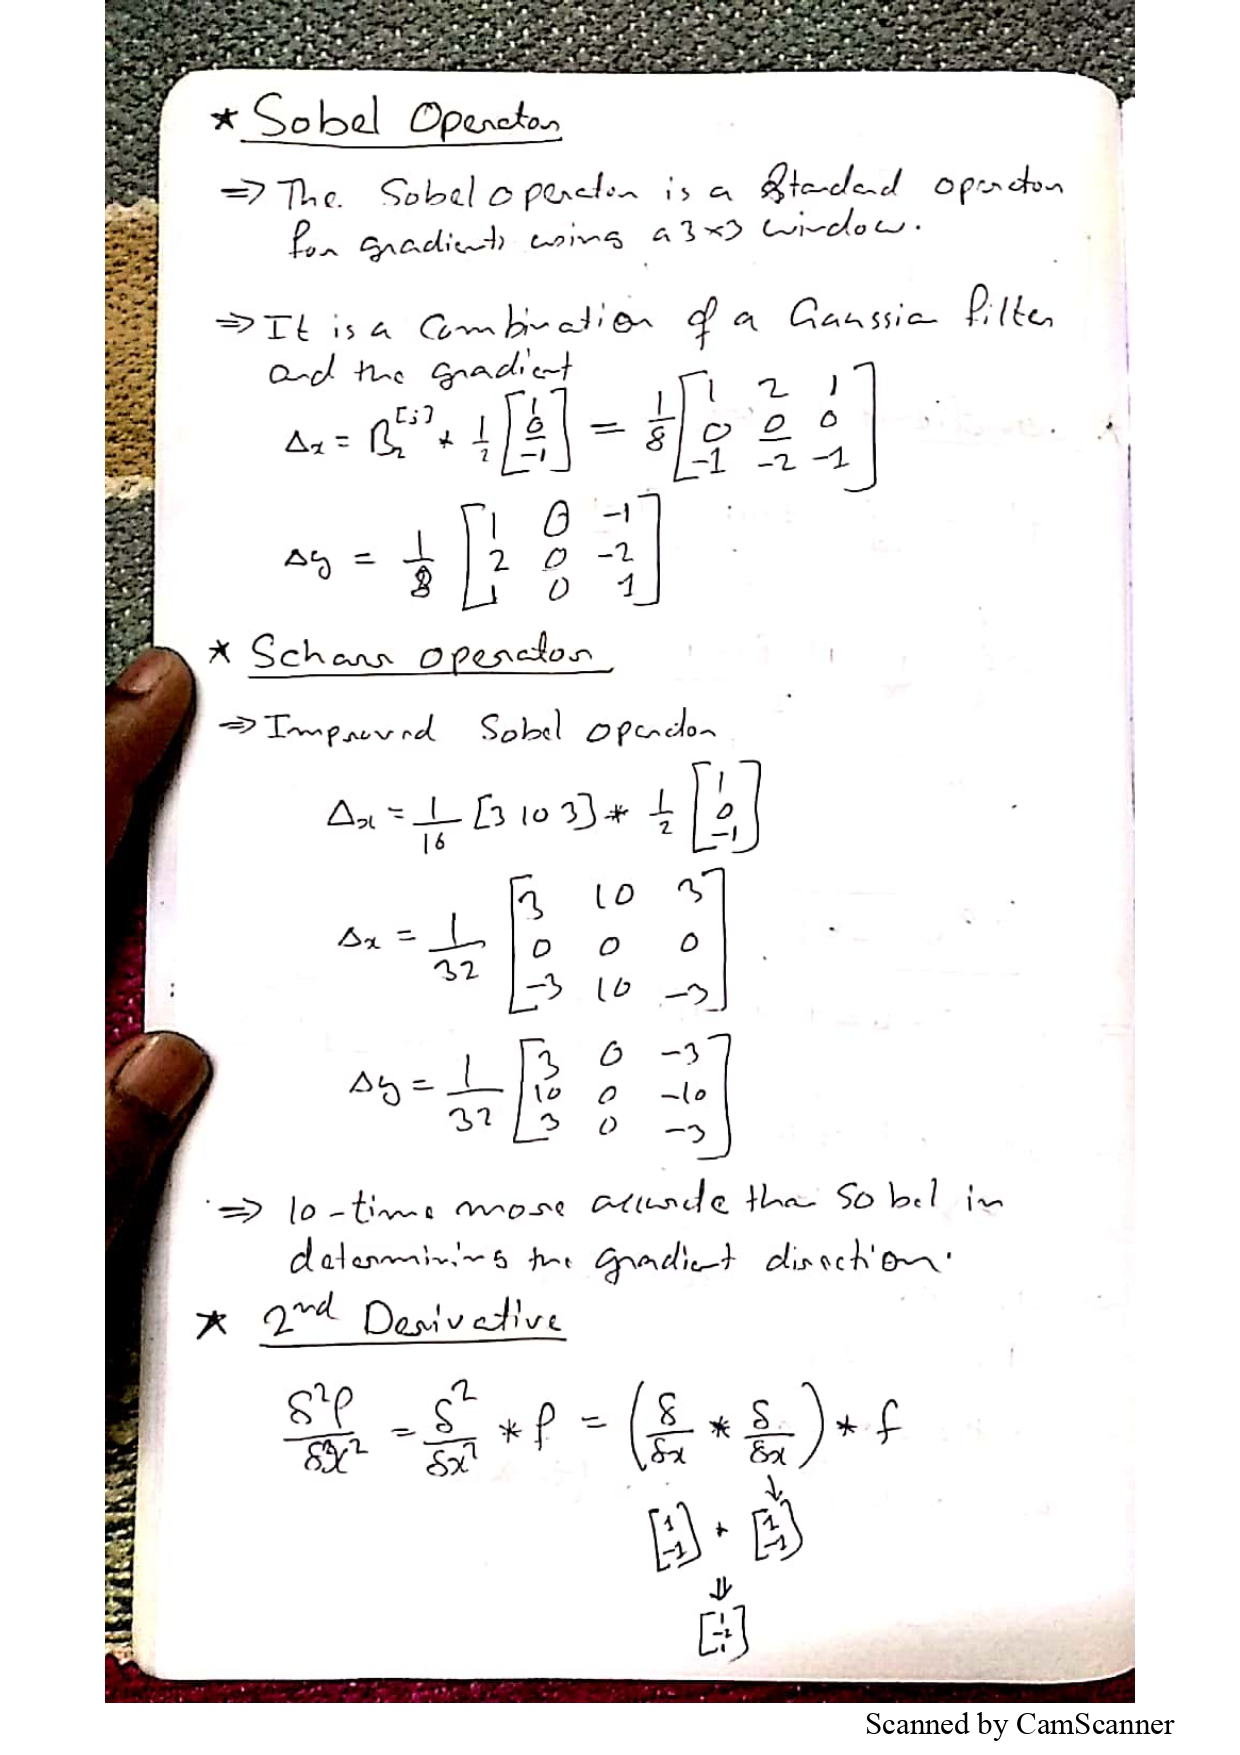 * Sobel Operator
⇒ The Sobel operator is a standard operator
for gradients using a 3×3 window.
⇒ It is a combination of a Gaussian filter
and the gradient
Δx = B₂^[j] * 1/2 [1 0 -1] = 1/8 [1 2 1; 0 0 0; -1 -2 -1]
Δy = 1/8 [1 0 -1; 2 0 -2; 1 0 1]
* Scharr operator
⇒ Improved Sobel operator
Δx = 1/16 [3 10 3] * 1/2 [1 0 -1]
Δx = 1/32 [3 10 3; 0 0 0; -3 10 -3]
Δy = 1/32 [3 0 -3; 10 0 -10; 3 0 -3]
⇒ 10-time more accurate than Sobel in
determining the gradient direction.
* 2nd Derivative
δ²f/δx² = δ²/δx² * f = (δ/δx * δ/δx) * f
↓
[1 -1] * [1 -1]
⇓
[1 -2 1]
Scanned by CamScanner